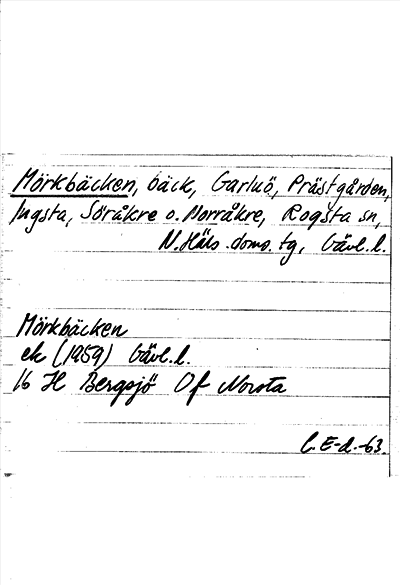 Mörkbäcken, bäck, Garluö, Prästgården,
Ingsta, Söråkre o. Norråkre, Rogsta sn,
N. Häls. doms. tg, Gävl. l.
Mörkbäcken
ek (1959) Gävl. l.
16 H Bergsjö Of Norsta
C. E-d. -63.